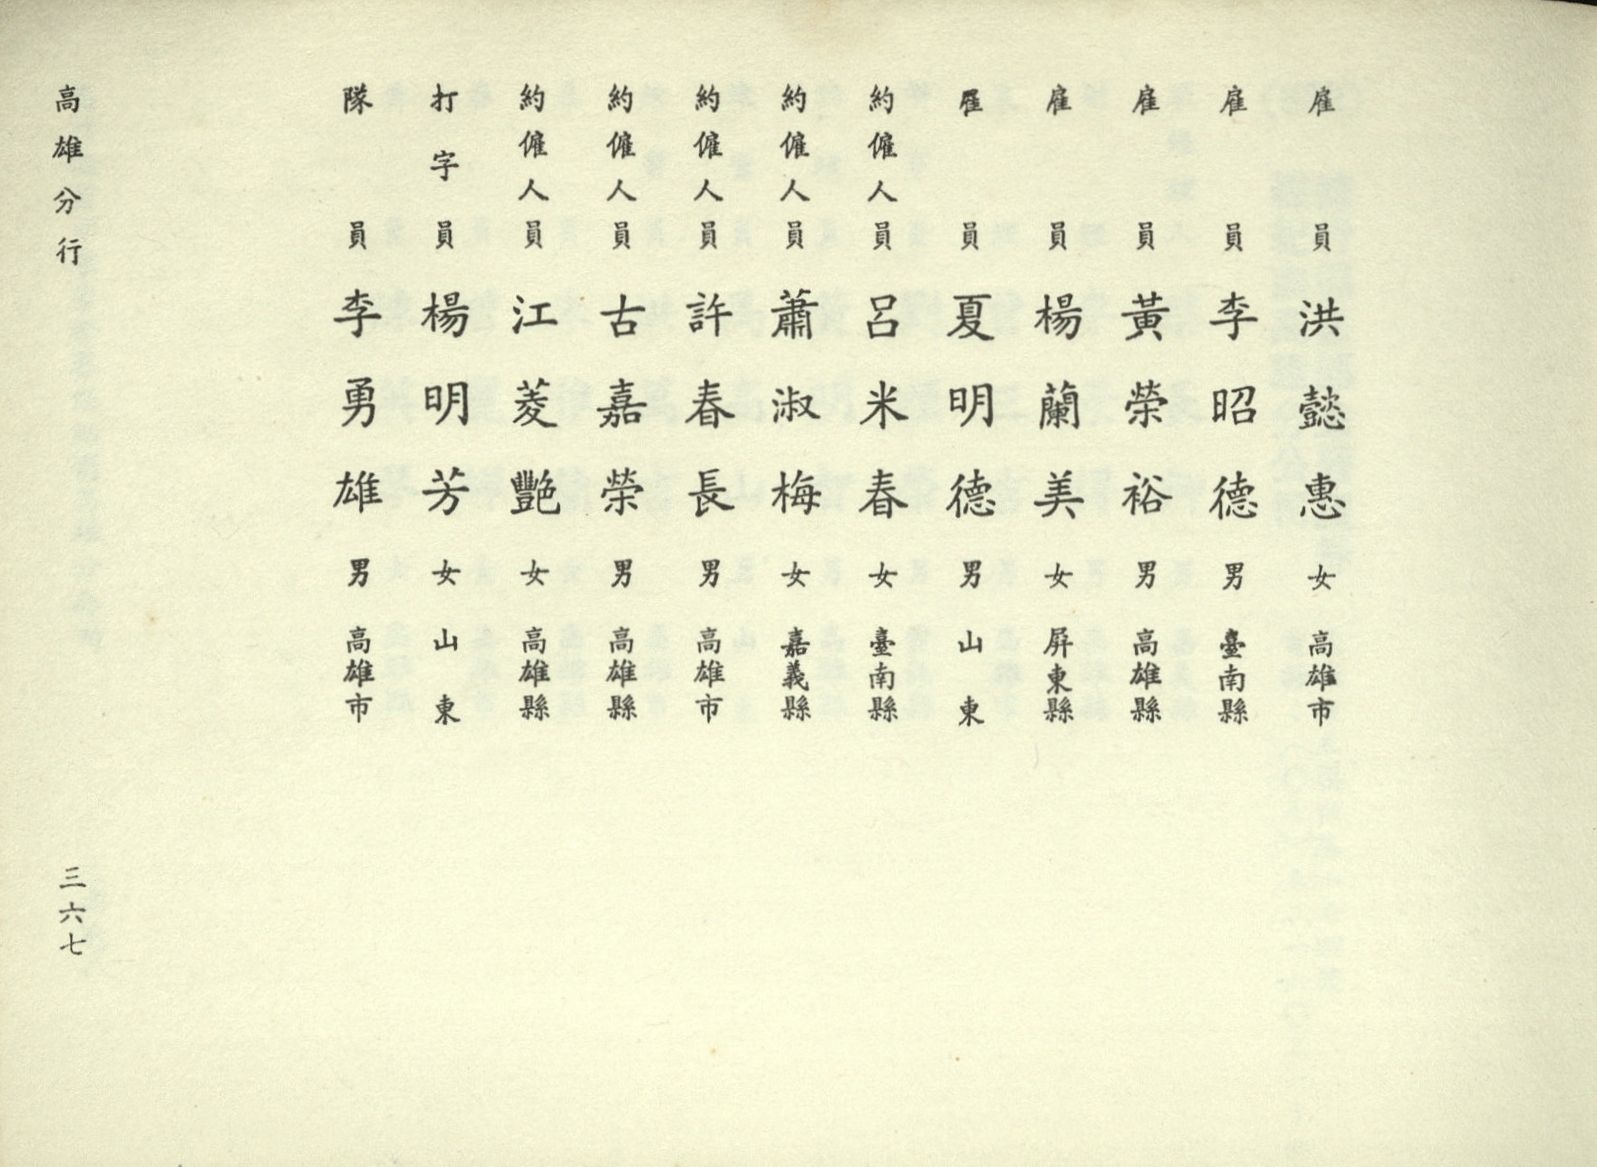 雇員 洪懿惠 女 高雄市
雇員 李昭德 男 臺南縣
雇員 黃榮裕 男 高雄縣
雇員 楊蘭美 女 屏東縣
雇員 夏明德 男 山東
約僱人員 呂米春 女 臺南縣
約僱人員 蕭淑梅 女 嘉義縣
約僱人員 許春長 男 高雄市
約僱人員 古嘉榮 男 高雄縣
約僱人員 江菱艷 女 高雄縣
打字員 楊明芳 女 山東
隊員 李勇雄 男 高雄市
高雄分行
三六七